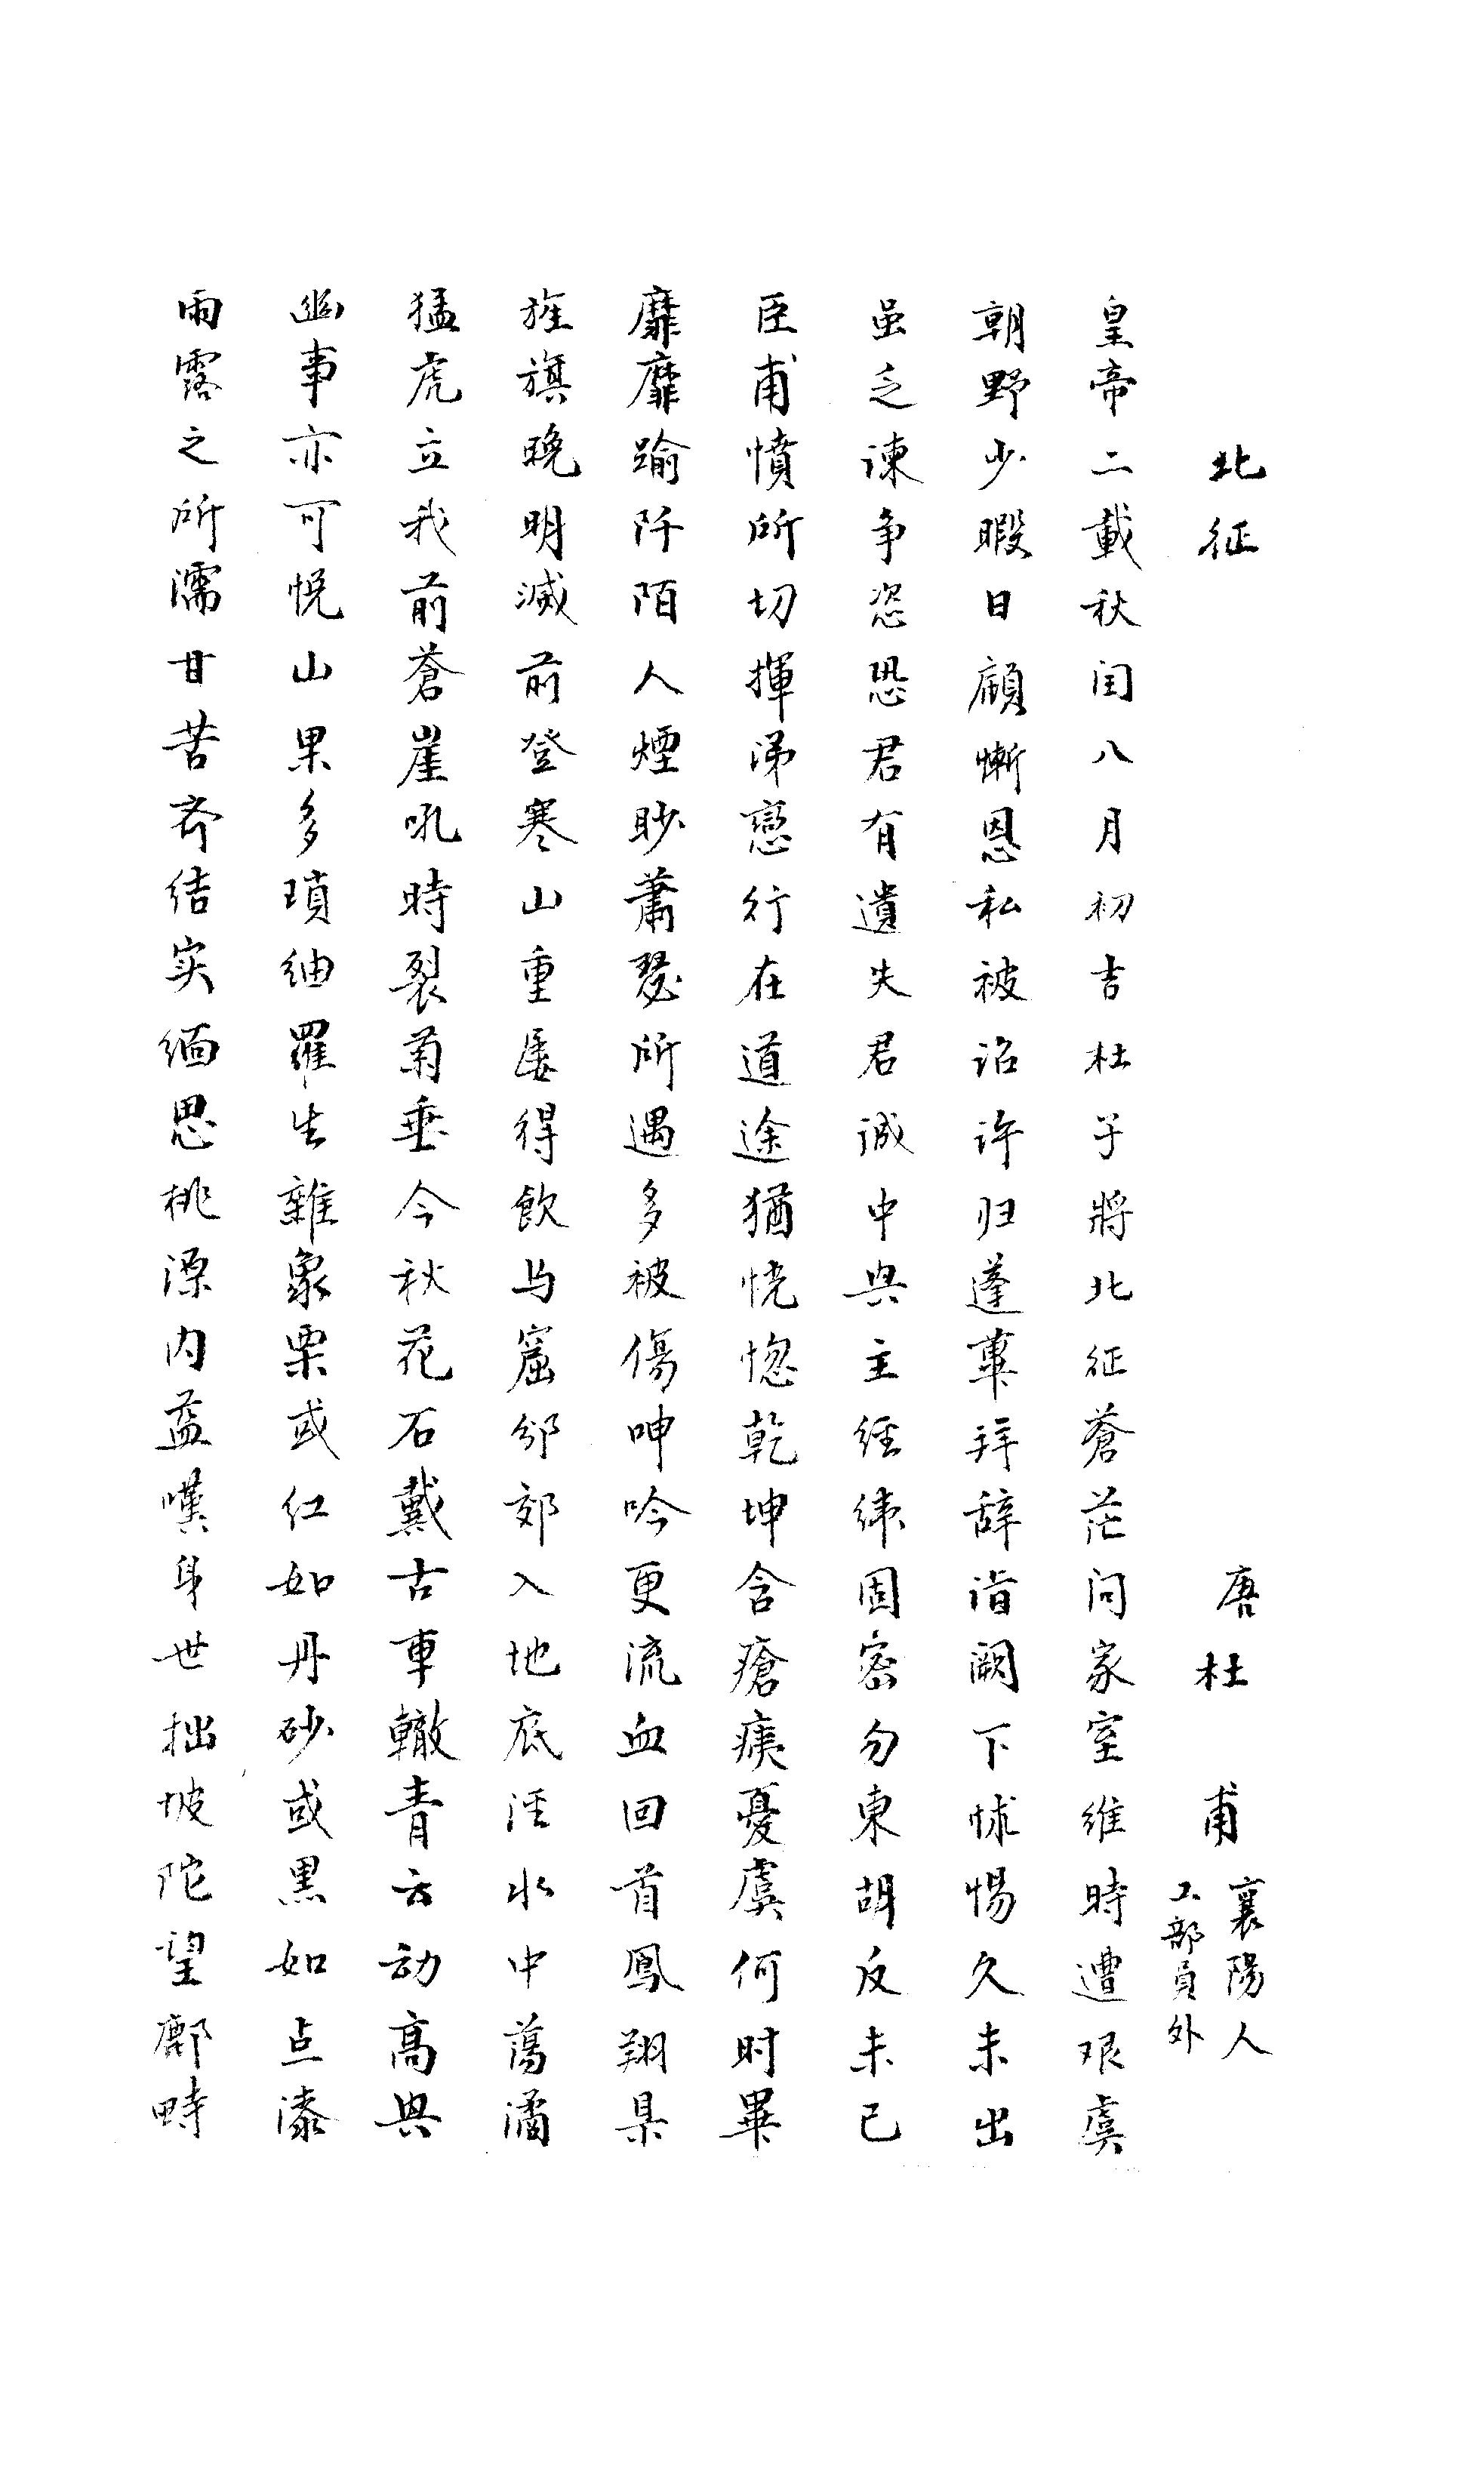 北征
唐杜甫
襄陽人
工部員外
皇帝二載秋闰八月初吉杜子將北征蒼茫问家室维時遭艰虞
朝野少暇日顧慚恩私被诏许归蓬蓽拜辞诣阙下怵惕久未出
虽乏谏争恣恐君有遺失君诚中興主经纬固密勿東胡反未已
臣甫憤所切揮涕戀行在道途猶恍惚乾坤含瘡痍憂虞何时畢
靡靡踰阡陌人煙眇蕭瑟所遇多被傷呻吟更流血回首鳳翔県
旌旗晚明滅前登寒山重屡得飲马窟邠郊入地底泾水中蕩潏
猛虎立我前蒼崖吼時裂菊垂今秋花石戴古車轍青云动高興
幽事亦可悦山果多瑣细羅生雜象栗或红如丹砂或黑如点漆
雨露之所濡甘苦齐结实缅思桃源内益嘆身世拙坡陀望鄜畤